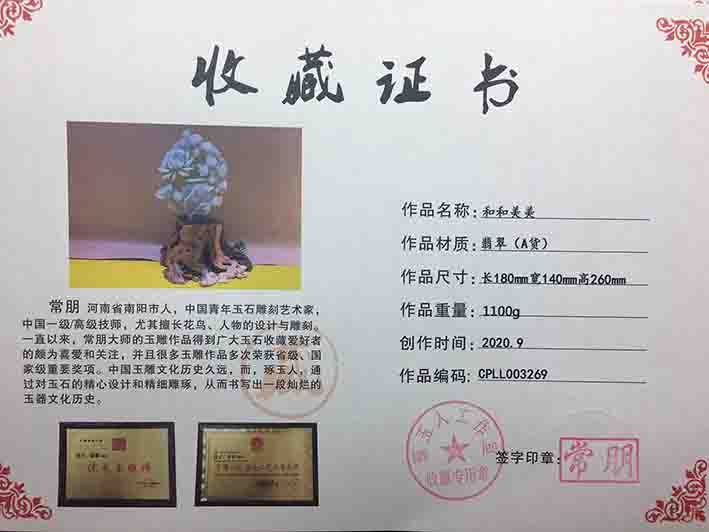 收藏证书
作品名称：和和美美
作品材质：翡翠（A货）
作品尺寸：长180mm宽140mm高260mm
作品重量：1100g
创作时间：2020.9
作品编码：CPLL003269
常朋 河南省南阳市人，中国青年玉石雕刻艺术家，
中国一级/高级技师，尤其擅长花鸟、人物的设计与雕刻。
一直以来，常朋大师的玉雕作品得到广大玉石收藏爱好者
的颇为喜爱和关注，并且很多玉雕作品多次荣获省级、国
家级重要奖项。中国玉雕文化历史久远，而，琢玉人，通
过对玉石的精心设计和精细雕琢，从而书写出一段灿烂的
玉器文化历史。
玉人工作室
收藏专用章
签字印章：
常朋